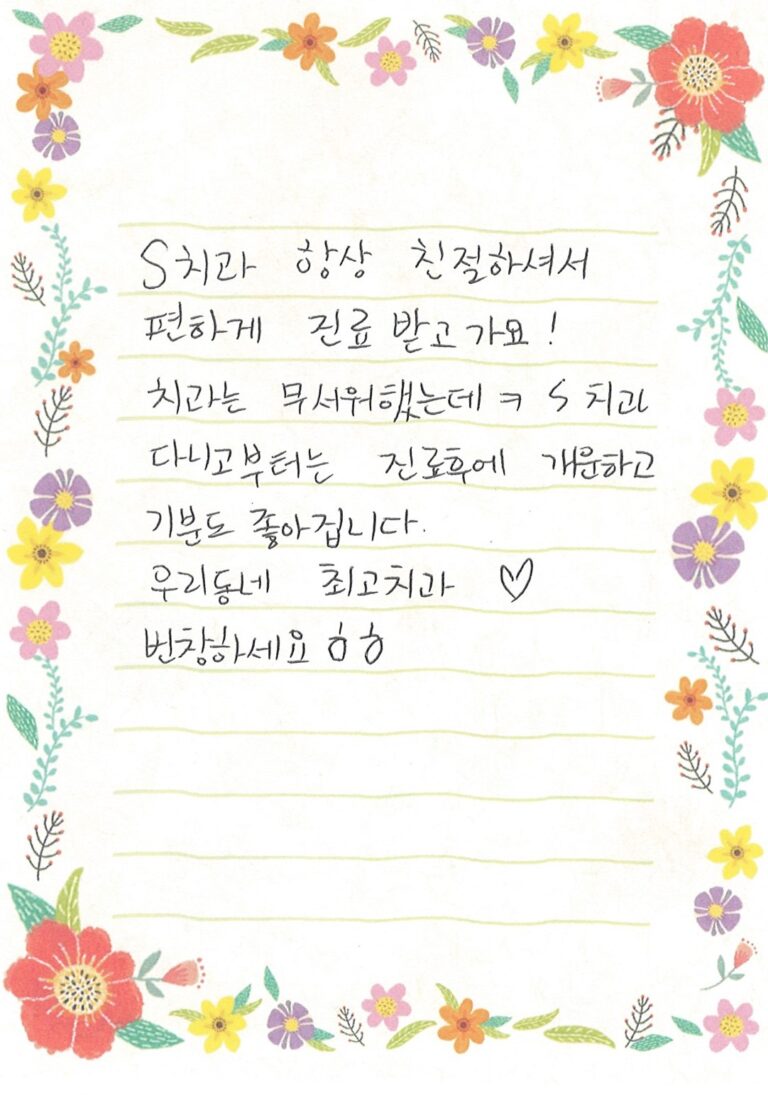 S치과 항상 친절하셔서
편하게 진료 받고 가요!
치과는 무서워했는데 ㅋ S 치과
다니고부터는 진료후에 개운하고
기분도 좋아집니다.
우리동네 최고치과 ♡
번창하세요 ㅎㅎ